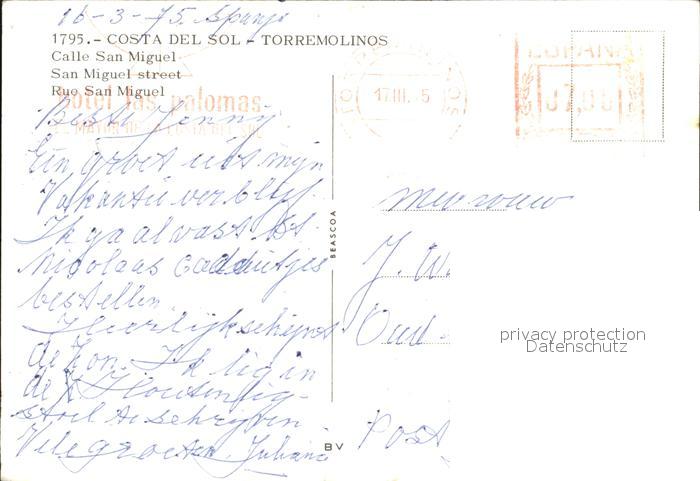 16-3-75. Spanje
1795.- COSTA DEL SOL - TORREMOLINOS
Calle San Miguel
San Miguel street
Rue San Miguel
hotel las palomas
COSTA DEL SOL
17.III.75
ESPAÑA
07,00
Beste Jenny.
Een groet uit mijn
Vakantie verblijf.
Ik ga alvast St
Nicolaas cadeautjes
bestellen.
Heerlijk schijnt
de zon. Ik lig in
de
stoel te schrijven
Vele groeten. Juliana
BEASCOA
BV
Mevrouw
J. W.
Oud-
Post
privacy protection
Datenschutz